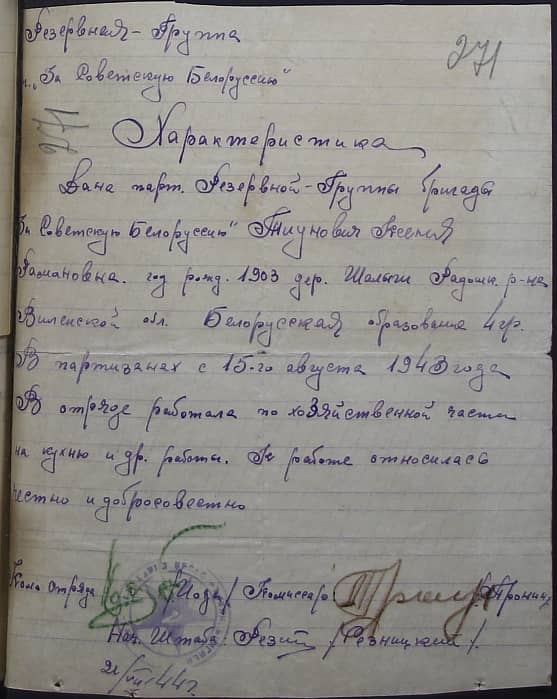 Резервная - Группа
271
„За Советскую Белоруссию"
271
Характеристика
Дана парт. Резервной - Группы бригады
За Советскую Белоруссию" Тиунович Ксения
Рамановна. год рожд. 1903 дер. Шалыги Радошк. р-на
Виленской обл. Белорусская образование 4 гр.
В партизанах с 15-го августа 1943 года
В отряде работала по хозяйственной части
на кухню и др. работы. К работе относилась
честно и добросовестно
Ком. отряда Комиссар
Нач. Штаба: /Резницкий/.
21/VII-44 г.